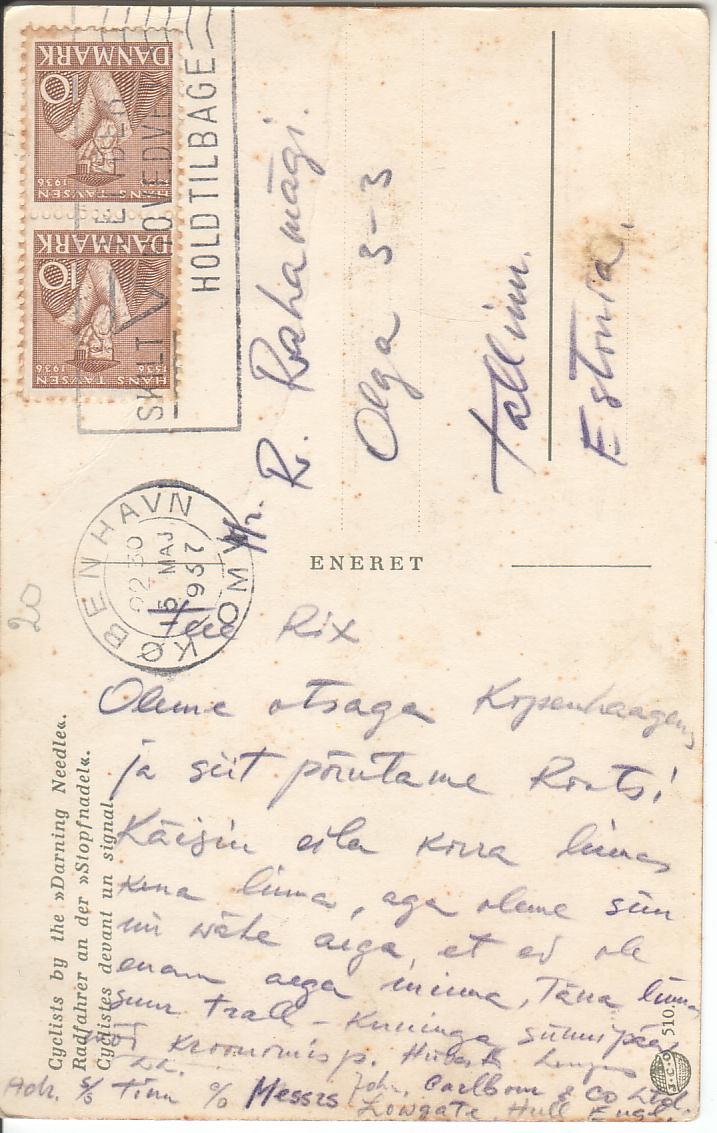 DANMARK
10
HANS TAVSEN
1536 1936
DANMARK
10
HANS TAVSEN
1536 1936
SKILT
HOVEDVEJ
HOLD TILBAGE
KØBENHAVN OMK
22 30
15 MAJ
1937
Hr. R. Rahamägi.
Olga 3-3
Tallinn.
Estonia.
ENERET
20
Rix
Oleme otsaga Kopenhaagenis
ja siit põrutame Rootsi
Käisin eila korra linnas
kena linna, aga oleme siin
nii wähe aega, et ei ole
enam aega minna, Täna linnas
suur trall - Kuninga sünnipäev
või kroonimisp.
Adr. S/S Tiiu c/o Messrs John Carlbom & Co Ltd.
Lowgate, Hull Engl.
Cyclists by the »Darning Needle«.
Radfahrer an der »Stopfnadel«.
Cyclistes devant un signal.
510.